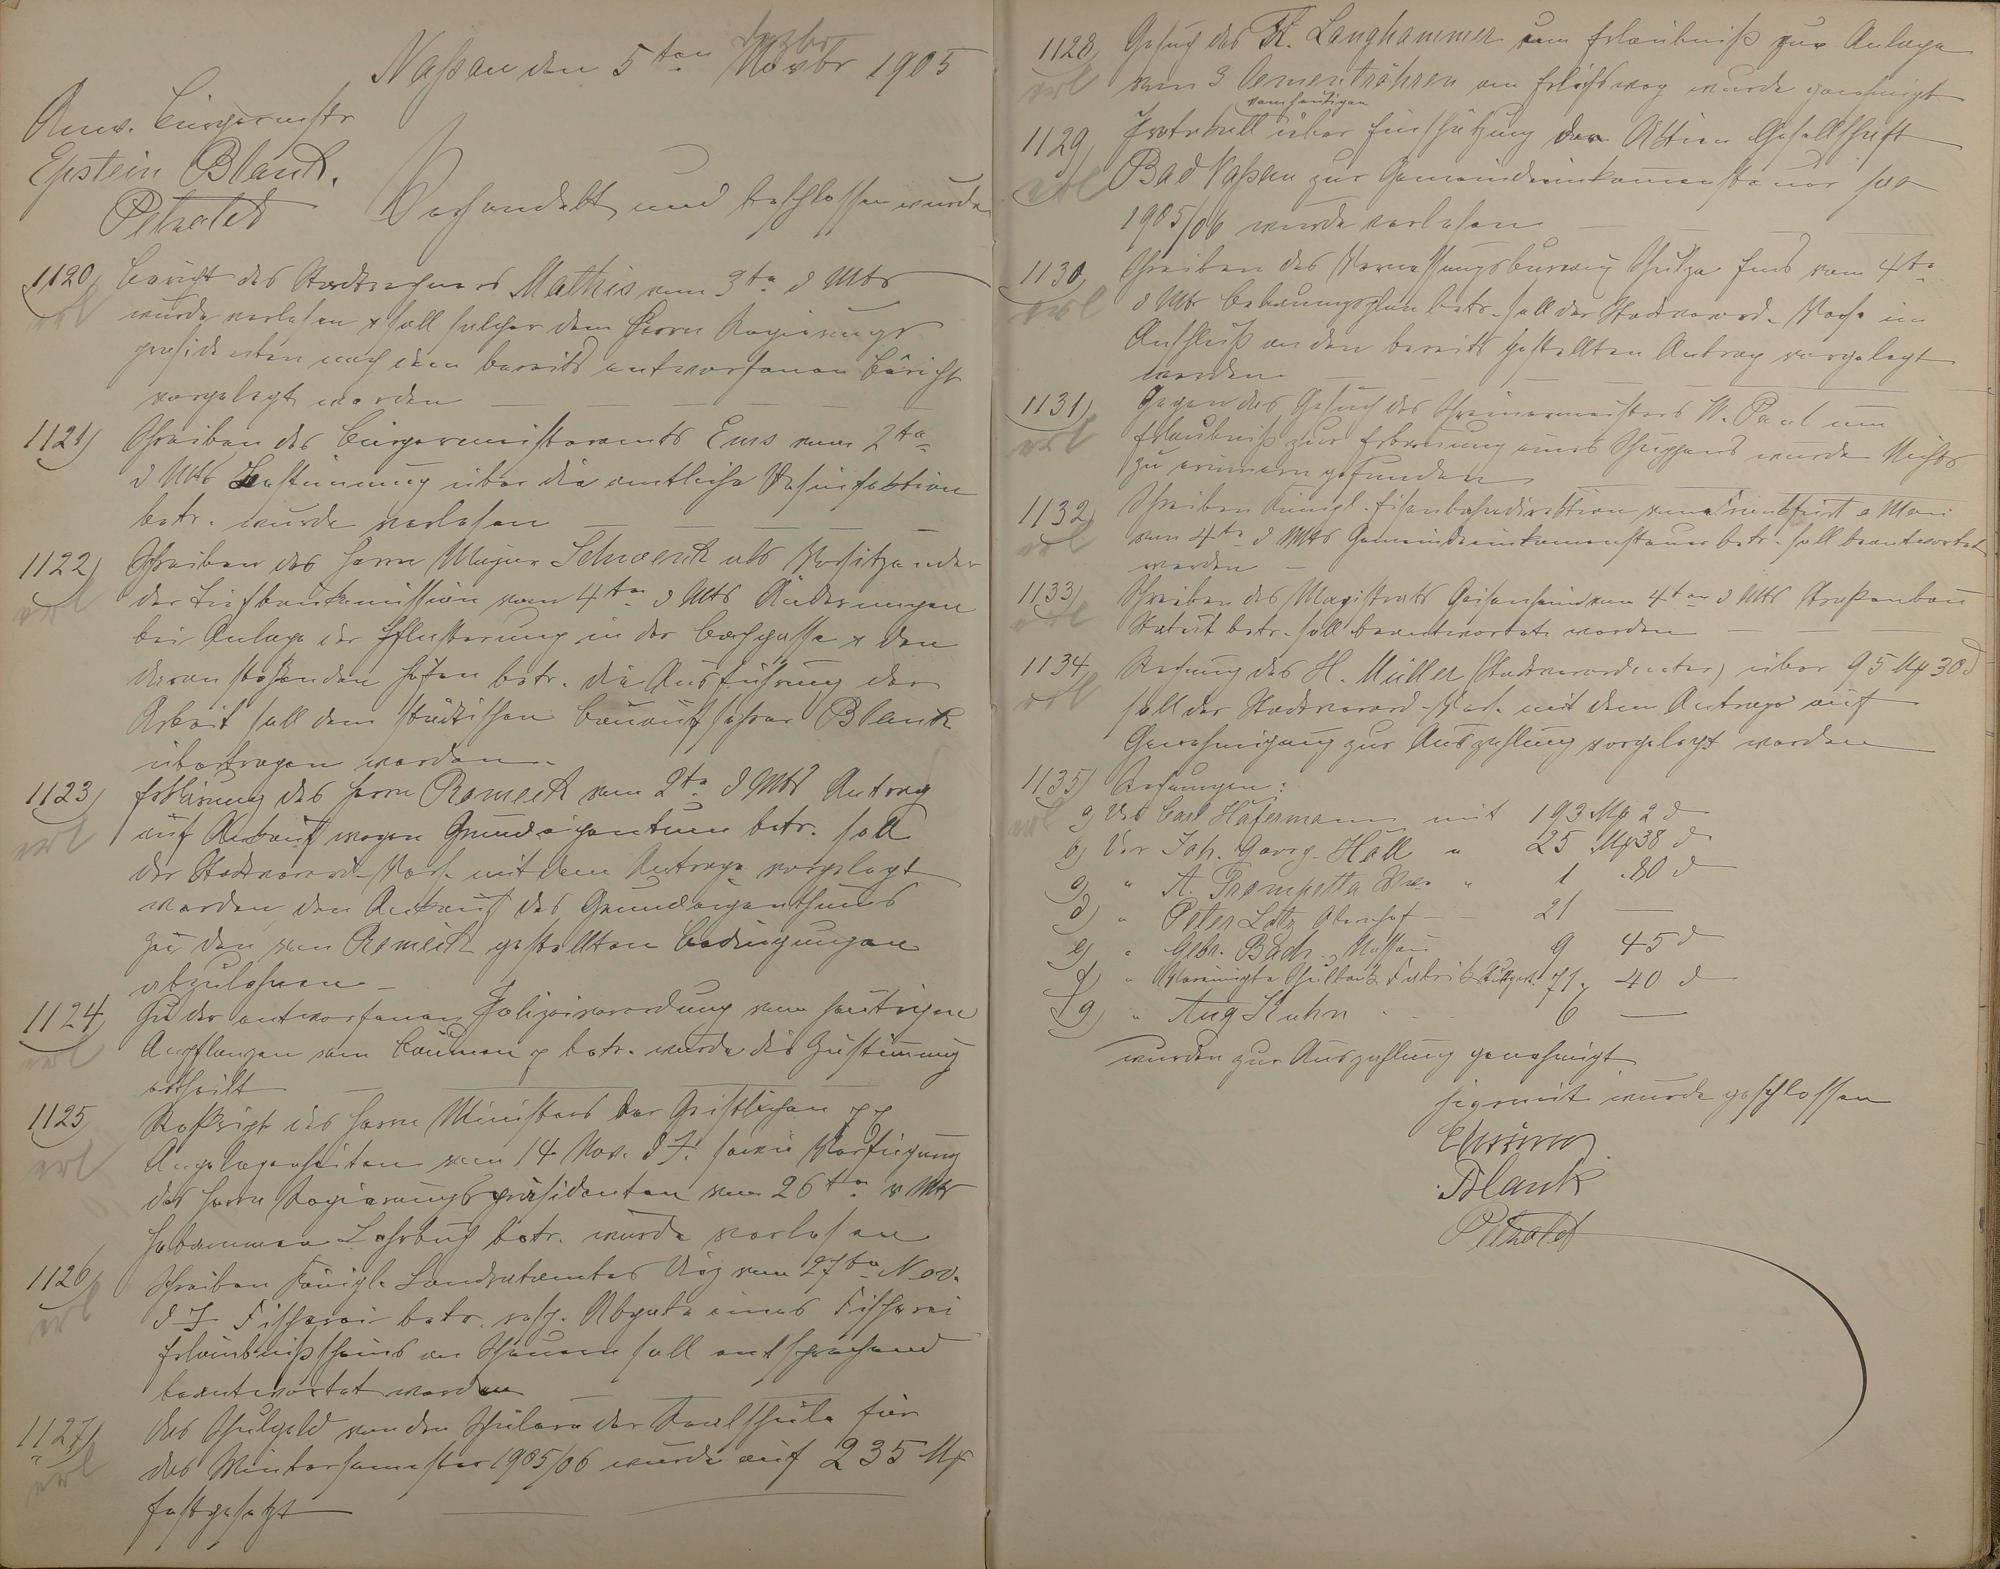 Dezbr
Nassau den 5ten Novbr 1905
Anw. Bürgermstr
Epstein Blank.
Petholdt
Verhandelt und beschlossen wurde
1120) Bericht des Stadtrechners Mathis vom 3ten d Mts
erl wurde verlesen & soll solcher dem Herrn Regierungs
präsidenten nach dem bereits entworfenen Bericht
vorgelegt werden
1121) Schreiben des Bürgermeisteramts Ems vom 2ten
d Mts Zustimmung über die amtliche Desinfektion
betr. wurde verlesen
1122) Schreiben des Herrn Major Schwenk als Vorsitzender
erl der Tiefbaukommission vom 4ten d Mts Änderungen
bei Anlage der Pflasterung in der Bachgasse & den
daranstoßenden Höfen betr. die Ausführung der
Arbeit soll dem städtischen Bauaufseher Blank
übertragen werden
1123) Erklärung des Herrn Romeick vom 2ten d Mts Antrag
erl auf Ankauf wegen Grundeigentum betr. soll
der Stadtverord. Vers. mit dem Antrage vorgelegt
werden den Ankauf des Grundeigenthums
zu den von Romeick gestellten Bedingungen
abzulehnen
1124) Zu der entworfenen Polizeiverordnung vom heutigen
erl Anpflanzen von Bäumen pp betr. wurde die Zustimmung
ertheilt
1125) Reskript des Herrn Ministers der Geistlichen pp
erl Angelegenheiten vom 14 Nov. d J. sowie Verfügung
des Herrn Regierungspräsidenten vom 26ten v Mts
Hebammen Lehrbuch betr. wurde verlesen
1126) Schreiben Königl. Landratamtes Diez vom 27ten Nov.
erl d J Fischerei betr. resp. Abgabe eines Fischerei
Erlaubnißscheins an soll entsprechend
beantwortet werden
1127) Das Schulgeld von den Schülern der Realschule für
erl das Wintersemester 1905/06 wurde auf 235 Mk
festgesetzt
1128) Gesuch des K. Langhammer um Erlaubniß zur Anlage
erl von 3 Cementröhren am wurde genehmigt
vom heutigen
1129) Protokoll über Einschätzung der Aktien Gesellschaft
erl Bad Nassau zur Gemeindeeinkommensteuer pro
1905/06 wurde verlesen
1130) Schreiben des Vermessungsbureau Schulze Ems vom 4ten
erl d Mts Bebauungsplan betr. soll der Stadtverord. Vers. im
Anschluß an den bereits gestellten Antrag vorgelegt
werden
1131) Gegen das Gesuch des Schreinermeisters W. Paul um
erl Erlaubniß zur Erbauung eines Schuppens wurde Nichts
zu erinnern gefunden
1132) Schreiben Königl. Eisenbahndirektion von Frankfurt a Main
erl vom 4ten d Mts Gemeindeeinkommensteuer betr. soll beantwortet
werden
1133) Schreiben des Magistrats Geisenheim vom 4ten d Mts Straßenbau
erl Statut betr. soll beantwortet werden
1134) Rechnung des H. Müller (Stadtverordneter) über 95 Mk 30 d
erl soll der Stadtverord. Vers. mit dem Antrage auf
Genehmigung zur Auszahlung vorgelegt werden
1135) Rechnungen:
erl a) Des Carl Hafermann mit 193 Mk 2 d
b) Der Joh. Georg Höll " 25 Mk 38 d
c) " A. Trompetta Wwe " 1 . 80 d
d) " Peter Lotz Obernhof 21 —
e) " Gebr. Bach, Nassau 9 45 d
f) " Vereinigte Schulbank Fabrik Stuttgart 71. 40 d
g) " Aug Kuhn 6 —
wurden zur Auszahlung genehmigt
Hiermit wurde geschlossen
Blank
Petholdt